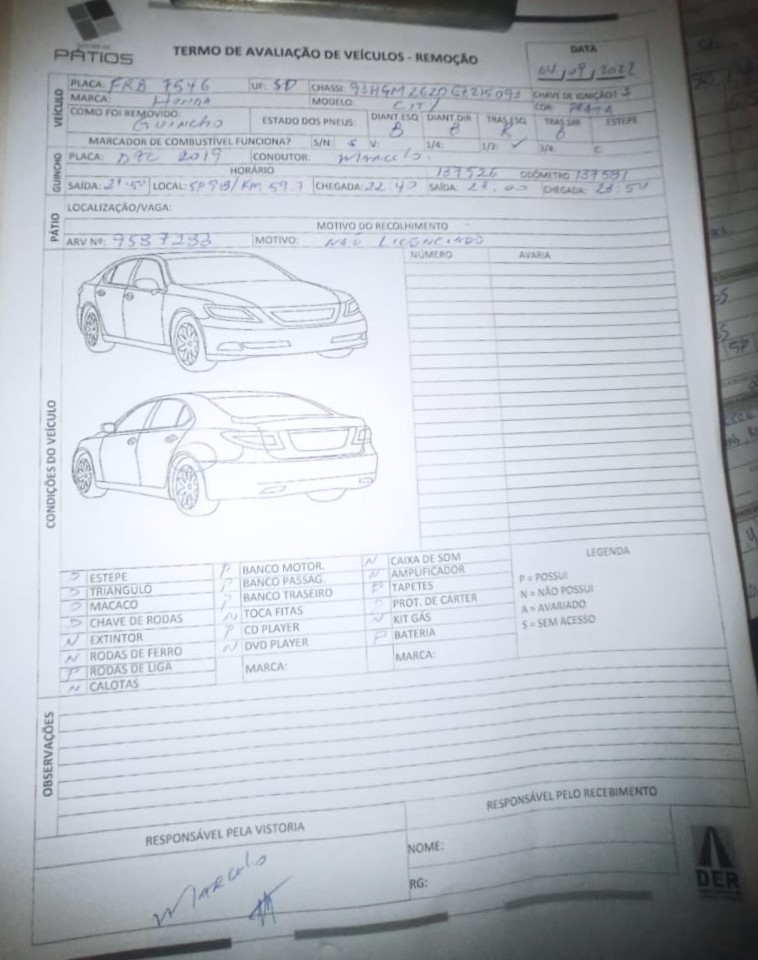 PÁTIOS
TERMO DE AVALIAÇÃO DE VEÍCULOS - REMOÇÃO
DATA
04, 09, 2022
VEÍCULO
PLACA: FRB 7546 UF: SP CHASSI: CHAVE DE IGNIÇÃO? S
MARCA: HONDA MODELO: CITY COR: PRATA
COMO FOI REMOVIDO: GUINCHO ESTADO DOS PNEUS: DIANT.ESQ B DIANT.DIR B TRAS.ESQ R TRAS.DIR B ESTEPE
MARCADOR DE COMBUSTÍVEL FUNCIONA? S/N: S V: 1/4: 1/2: ✓ 3/4: C:
GUINCHO
PLACA: 2019 CONDUTOR: MARCELO.
HORÁRIO 137526 ODÔMETRO 137591
SAÍDA: 21:50 LOCAL: SP 98/KM 59.7 CHEGADA: 22:40 SAÍDA: 23:00 CHEGADA: 23:50
PÁTIO
LOCALIZAÇÃO/VAGA:
MOTIVO DO RECOLHIMENTO
ARV Nº: 9587233 MOTIVO: NÃO LICENCIADO
CONDIÇÕES DO VEÍCULO
NÚMERO AVARIA
S ESTEPE
S TRIANGULO
S MACACO
S CHAVE DE RODAS
N EXTINTOR
N RODAS DE FERRO
P RODAS DE LIGA
N CALOTAS
P BANCO MOTOR.
P BANCO PASSAG.
P BANCO TRASEIRO
N TOCA FITAS
P CD PLAYER
N DVD PLAYER
MARCA:
N CAIXA DE SOM
N AMPLIFICADOR
P TAPETES
PROT. DE CÁRTER
N KIT GÁS
P BATERIA
MARCA:
LEGENDA
P = POSSUI
N = NÃO POSSUI
A = AVARIADO
S = SEM ACESSO
OBSERVAÇÕES
RESPONSÁVEL PELA VISTORIA
RESPONSÁVEL PELO RECEBIMENTO
Marcelo
NOME:
RG:
DER